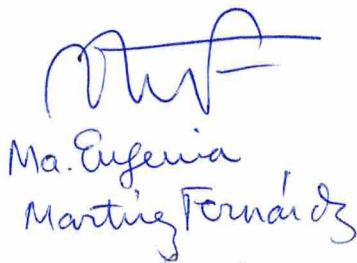 Ma. Eugenia
Martínez Fernández